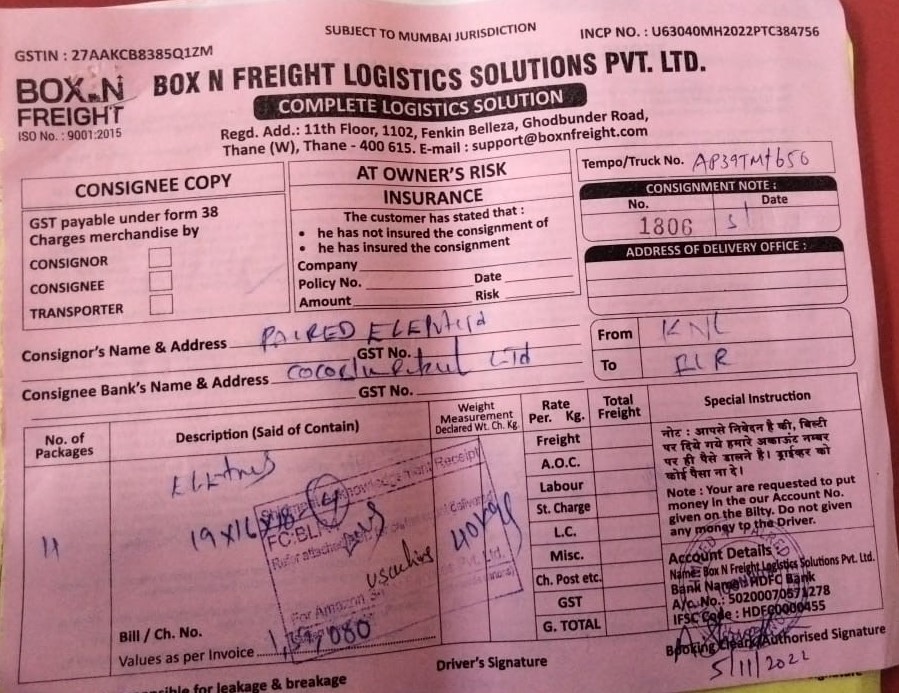 SUBJECT TO MUMBAI JURISDICTION
GSTIN : 27AAKCB8385Q1ZM
INCP NO. : U63040MH2022PTC384756
BOX N FREIGHT
ISO No. : 9001:2015
BOX N FREIGHT LOGISTICS SOLUTIONS PVT. LTD.
COMPLETE LOGISTICS SOLUTION
Regd. Add.: 11th Floor, 1102, Fenkin Belleza, Ghodbunder Road,
Thane (W), Thane - 400 615. E-mail : support@boxnfreight.com
CONSIGNEE COPY
GST payable under form 38
Charges merchandise by
CONSIGNOR
CONSIGNEE
TRANSPORTER
AT OWNER'S RISK
INSURANCE
The customer has stated that :
• he has not insured the consignment of
• he has insured the consignment
Company
Policy No. Date
Amount Risk
Tempo/Truck No.
CONSIGNMENT NOTE :
No. Date
1806
ADDRESS OF DELIVERY OFFICE :
Consignor's Name & Address
GST No.
Consignee Bank's Name & Address Ltd
GST No.
From KNL
To
No. of Packages
Description (Said of Contain)
Weight
Measurement
Declared Wt. Ch. Kg.
Rate Per. Kg.
Total Freight
Special Instruction
11
19x16x
40kgs
Shipment Acknowledgement Receipt
FC:BL
Refer attached
For Amazon
Freight
A.O.C.
Labour
St. Charge
L.C.
Misc.
Ch. Post etc.
GST
G. TOTAL
नोट : आपसे निवेदन है की, बिल्टी
पर दिये गये हमारे अकाऊंट नम्बर
पर ही पैसे डालने है। ड्राईव्हर को
कोई पैसा ना दे।
Note : Your are requested to put
money in the our Account No.
given on the Bilty. Do not given
any money to the Driver.
Account Details
Name: Box N Freight Logistics Solutions Pvt. Ltd.
Bank Name : HDFC Bank
A/c. No.: 50200070571278
IFSC Code : HDFC0000455
Bill / Ch. No.
Values as per Invoice
Driver's Signature
Booking Clerk/Authorised Signature
5/11/2022
for leakage & breakage